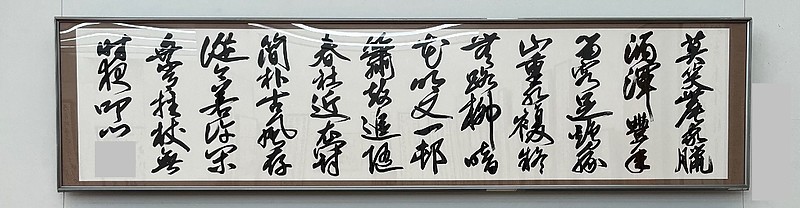 莫笑農家臘
酒渾豐年
留客足雞豚
山重水複疑
無路柳暗
花明又一邨
簫鼓追隨
春社近衣冠
簡朴古風存
從今若許閑
乘月拄杖無
時夜叩門